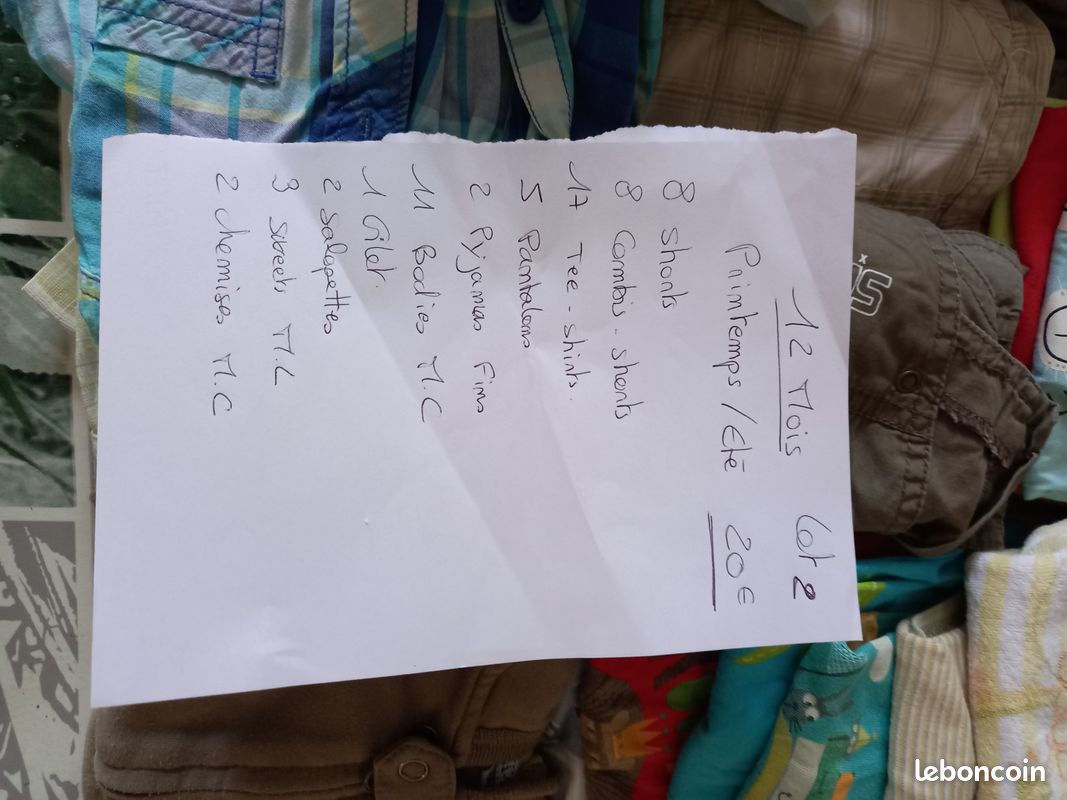 12 Mois Lot 2
Printemps / Eté 20€
8 Shorts
8 Combis - shorts
17 Tee - shirts.
5 Pantalons
2 Pyjamas Fins
11 Bodies M.C
1 Gilet.
2 Salopettes
3 Sweets M.L
2 Chemises M.C
leboncoin